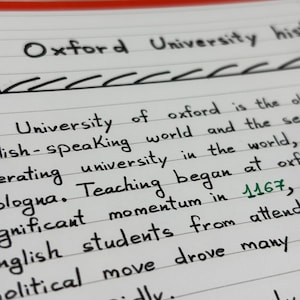 Oxford University his
University of oxford is the o
lish-speaking world and the se
erating university in the world,
ologna. Teaching began at oxf
gnificant momentum in 1167,
nglish students from attend
olitical move drove many
idly.